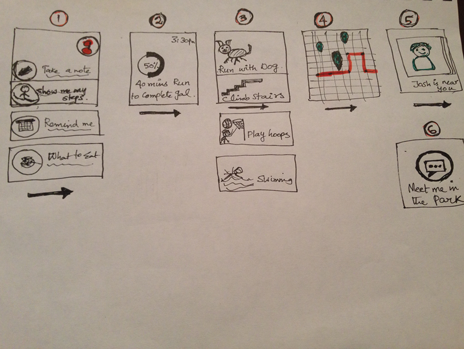 1
Take a note
Show me my
steps.
Remind me
What to Eat
2
3:30pm
50%
40 mins Run
to Complete Goal.
3
Run with Dog
Climb Stairs
Play hoops
4
5
Josh is near
you
6
Meet me in
the Park